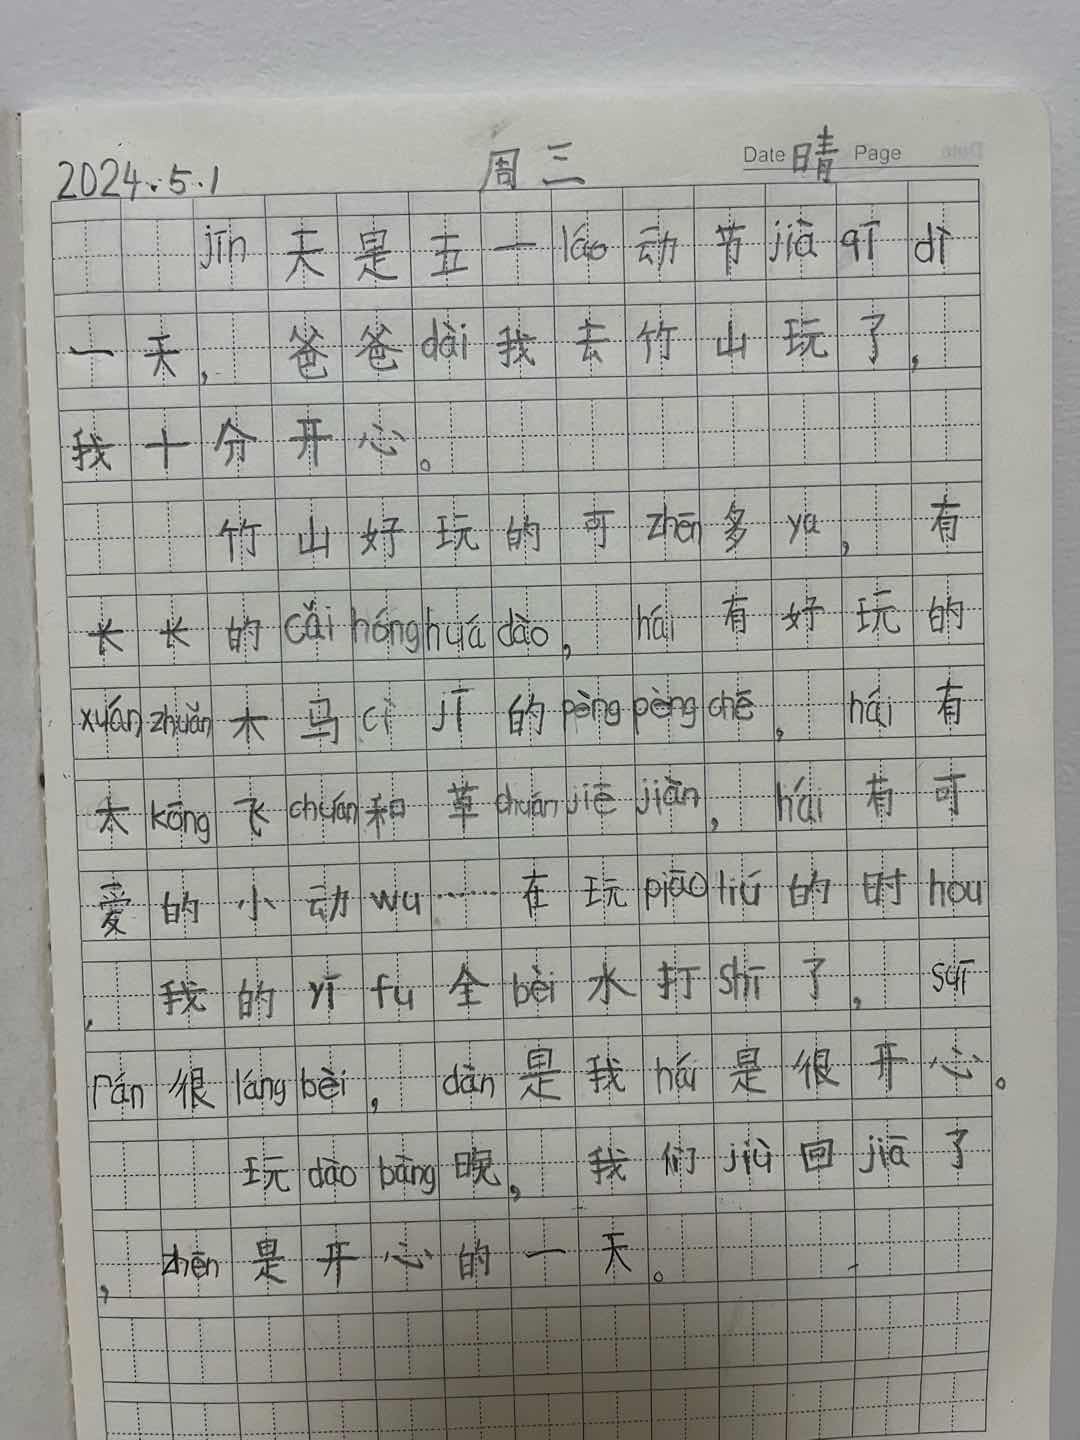 2024.5.1 周三 Date 晴 Page
jīn天是五一láo动节jià qī dì
一天，爸爸dài我去竹山玩了，
我十分开心。
竹山好玩的可zhēn多ya，有
长长的cǎi hóng huá dào，hái有好玩的
xuán zhuǎn木马cì jī的pèng pèng chē，hái有
太kōng飞chuán和草chuán jiē jiàn，hái有可
爱的小动wu……在玩piāo liú的时hou
，我的yī fu全bèi水打shī了，suī
rán很láng bèi，dàn是我hái是很开心。
玩dào bàng晚，我们jiù回jiā了
，zhēn是开心的一天。